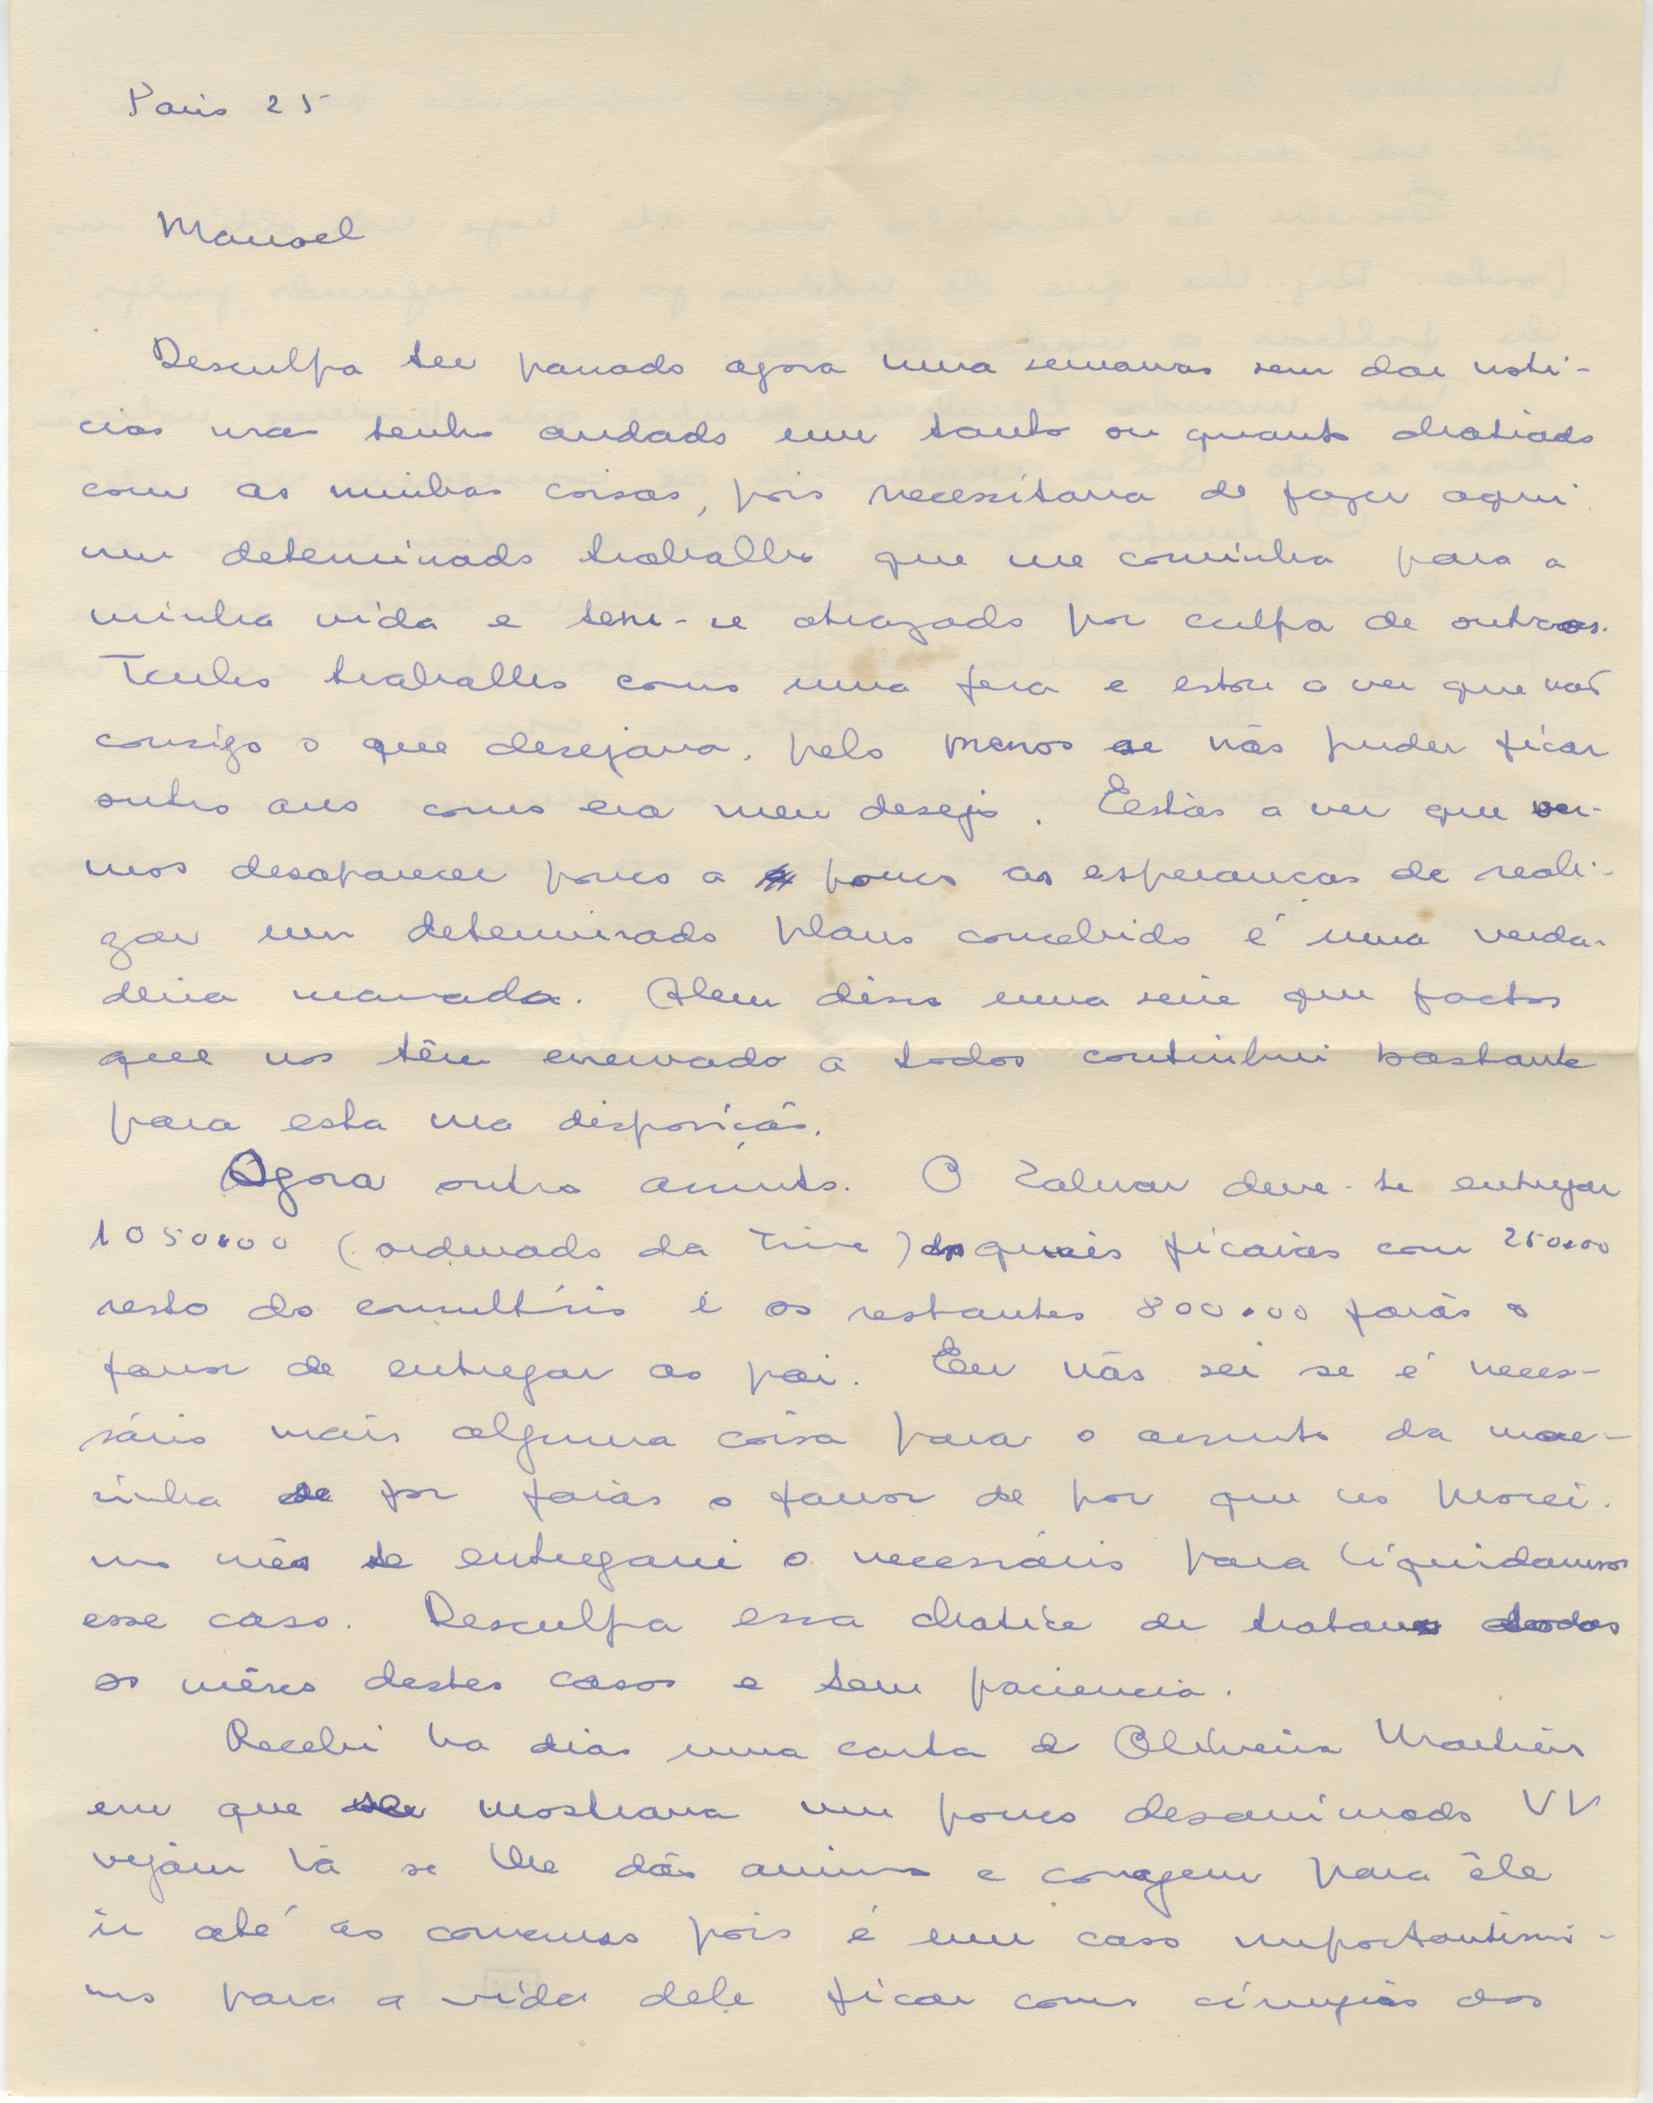 Paris 25
Manoel
Desculpa ter passado agora uma semanas sem dar noti-
cias mas tenho andado um tanto ou quanto chatiado
com as minhas coisas, pois necessitava de fazer aqui
um determinado trabalho que me convinha para a
minha vida e tem-se atrazado por culpa de outros.
Tenho trabalho como uma fera e estou a ver que não
consigo o que desejava, pelo menos se não puder ficar
outro ano como era meu desejo. Estás a ver que ver-
mos desaparecer pouco a pouco as esperanças de reali-
zar um determinado plano concebido é uma verda-
deira massada. Alem disso uma serie que factos
que nos têm enervado a todos contribui bastante
para esta ma disposição.
Agora outro assunto. O Zaluar deve-te entregar
1050$00 (ordenado da ) dos quais ficarás com 250$00
resto do consultório e os restantes 800$00 farás o
favor de entregar ao pai. Eu não sei se é neces-
sário mais alguma coisa para o assunto da mae-
sinha se for farás o favor de por que no proxi-
mo mês te entregarei o necessário para liquidarmos
esse caso. Desculpa essa chatice de tratares todos
os mêses destes casos e tem paciencia.
Recebi ha dias uma carta de Oliveira Martins
em que se mostrava um pouco desanimado VV
vejam lá se lhe dão animo e coragem para êle
ir até ao concurso pois é um caso importantissi-
mo para a vida dele ficar como cirurgião dos